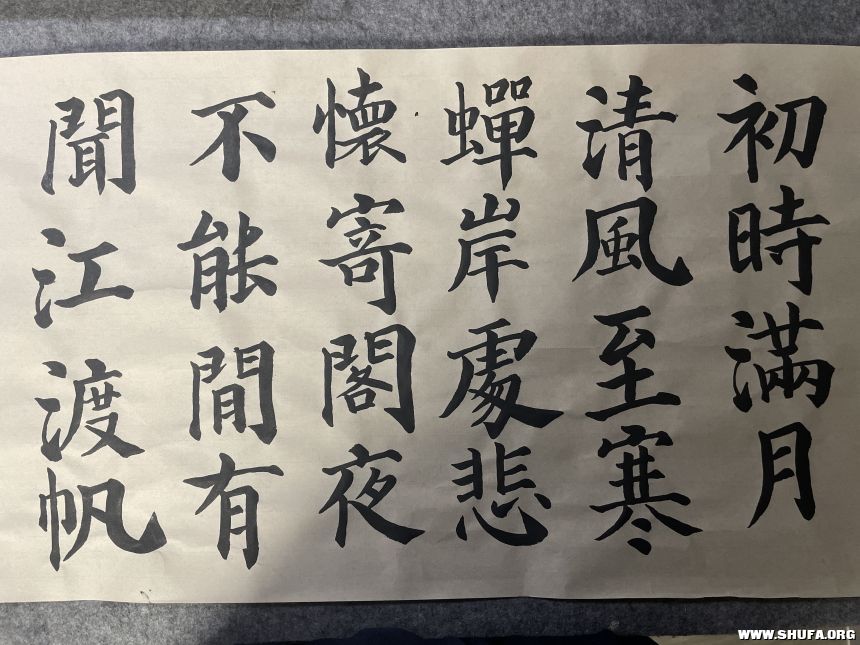 初時滿月
清風至寒
蟬岸處悲
懷寄閣夜
不能間有
聞江渡帆
WWW.SHUFA.ORG